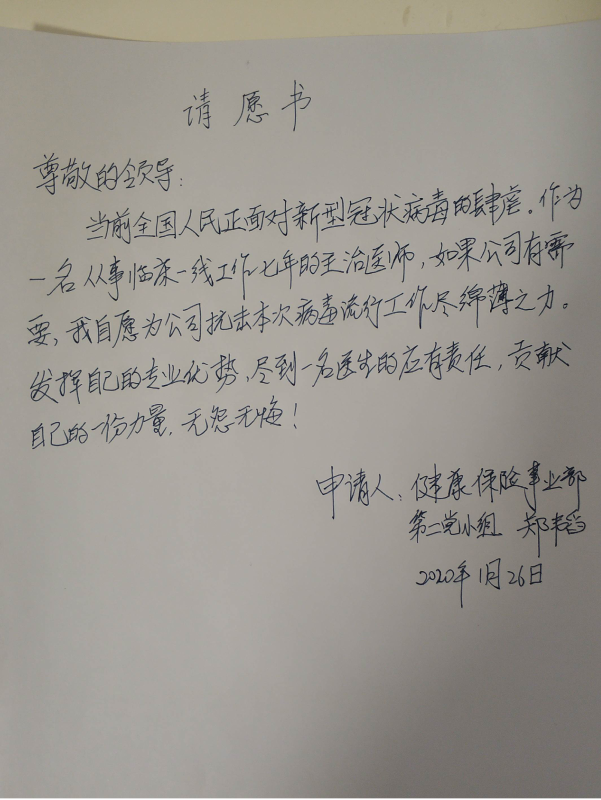 请愿书
尊敬的领导：
当前全国人民正面对新型冠状病毒的肆虐。作为
一名从事临床一线工作七年的主治医师，如果公司有需
要，我自愿为公司抗击本次病毒流行工作尽绵薄之力。
发挥自己的专业优势，尽到一名医生的应有责任，贡献
自己的一份力量，无怨无悔！
申请人：健康保险事业部
第二党小组 郑韬
2020年1月26日